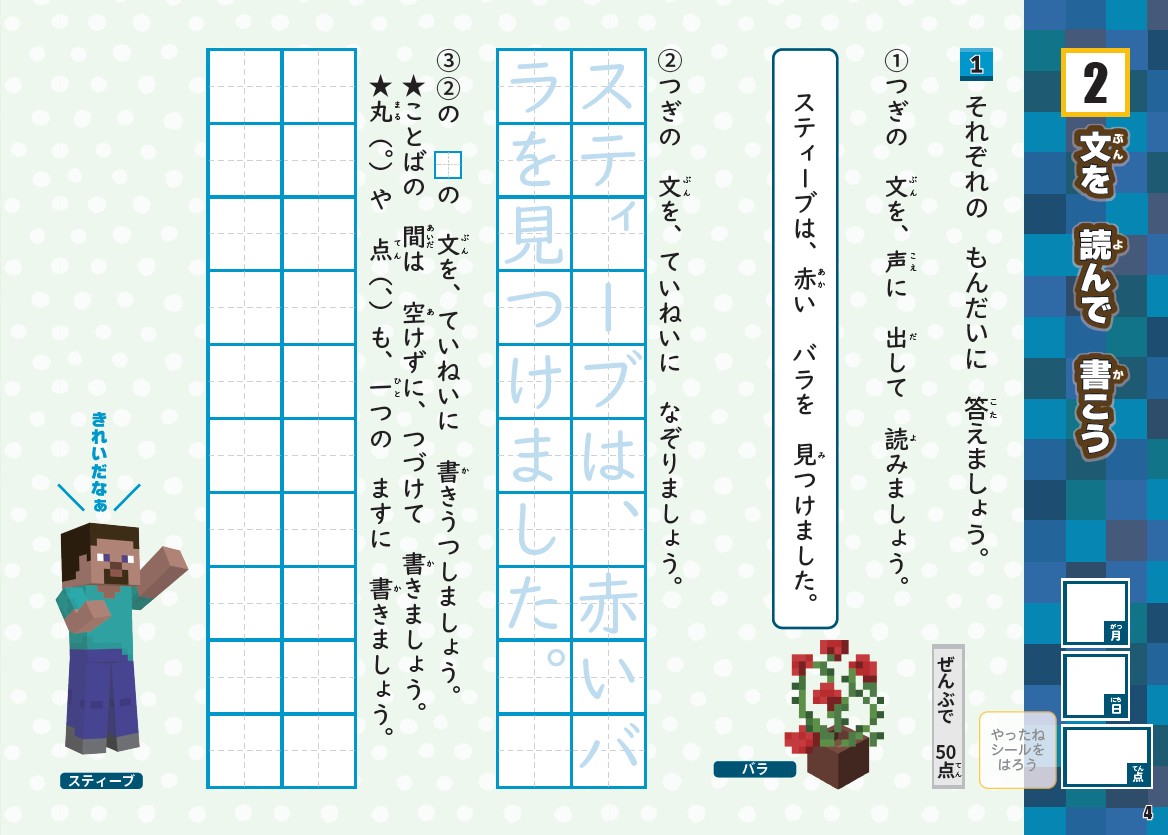 2
文を 読んで 書こう
ぶん よ か
月
がつ
日
にち
点
てん
やったね
シールを
はろう
4
1
それぞれの もんだいに 答えましょう。
こた
ぜんぶで 50点
てん
①つぎの 文を、声に 出して 読みましょう。
ぶん こえ だ よ
スティーブは、赤い バラを 見つけました。
あか み
バラ
②つぎの 文を、ていねいに なぞりましょう。
ぶん
スティーブは、赤いバ
ラを見つけました。
③②の の 文を、ていねいに 書きうつしましょう。
ぶん か
★ことばの 間は 空けずに、つづけて 書きましょう。
あいだ あ か
★丸（。）や 点（、）も、一つの ますに 書きましょう。
まる てん ひと か
きれいだなぁ
スティーブ